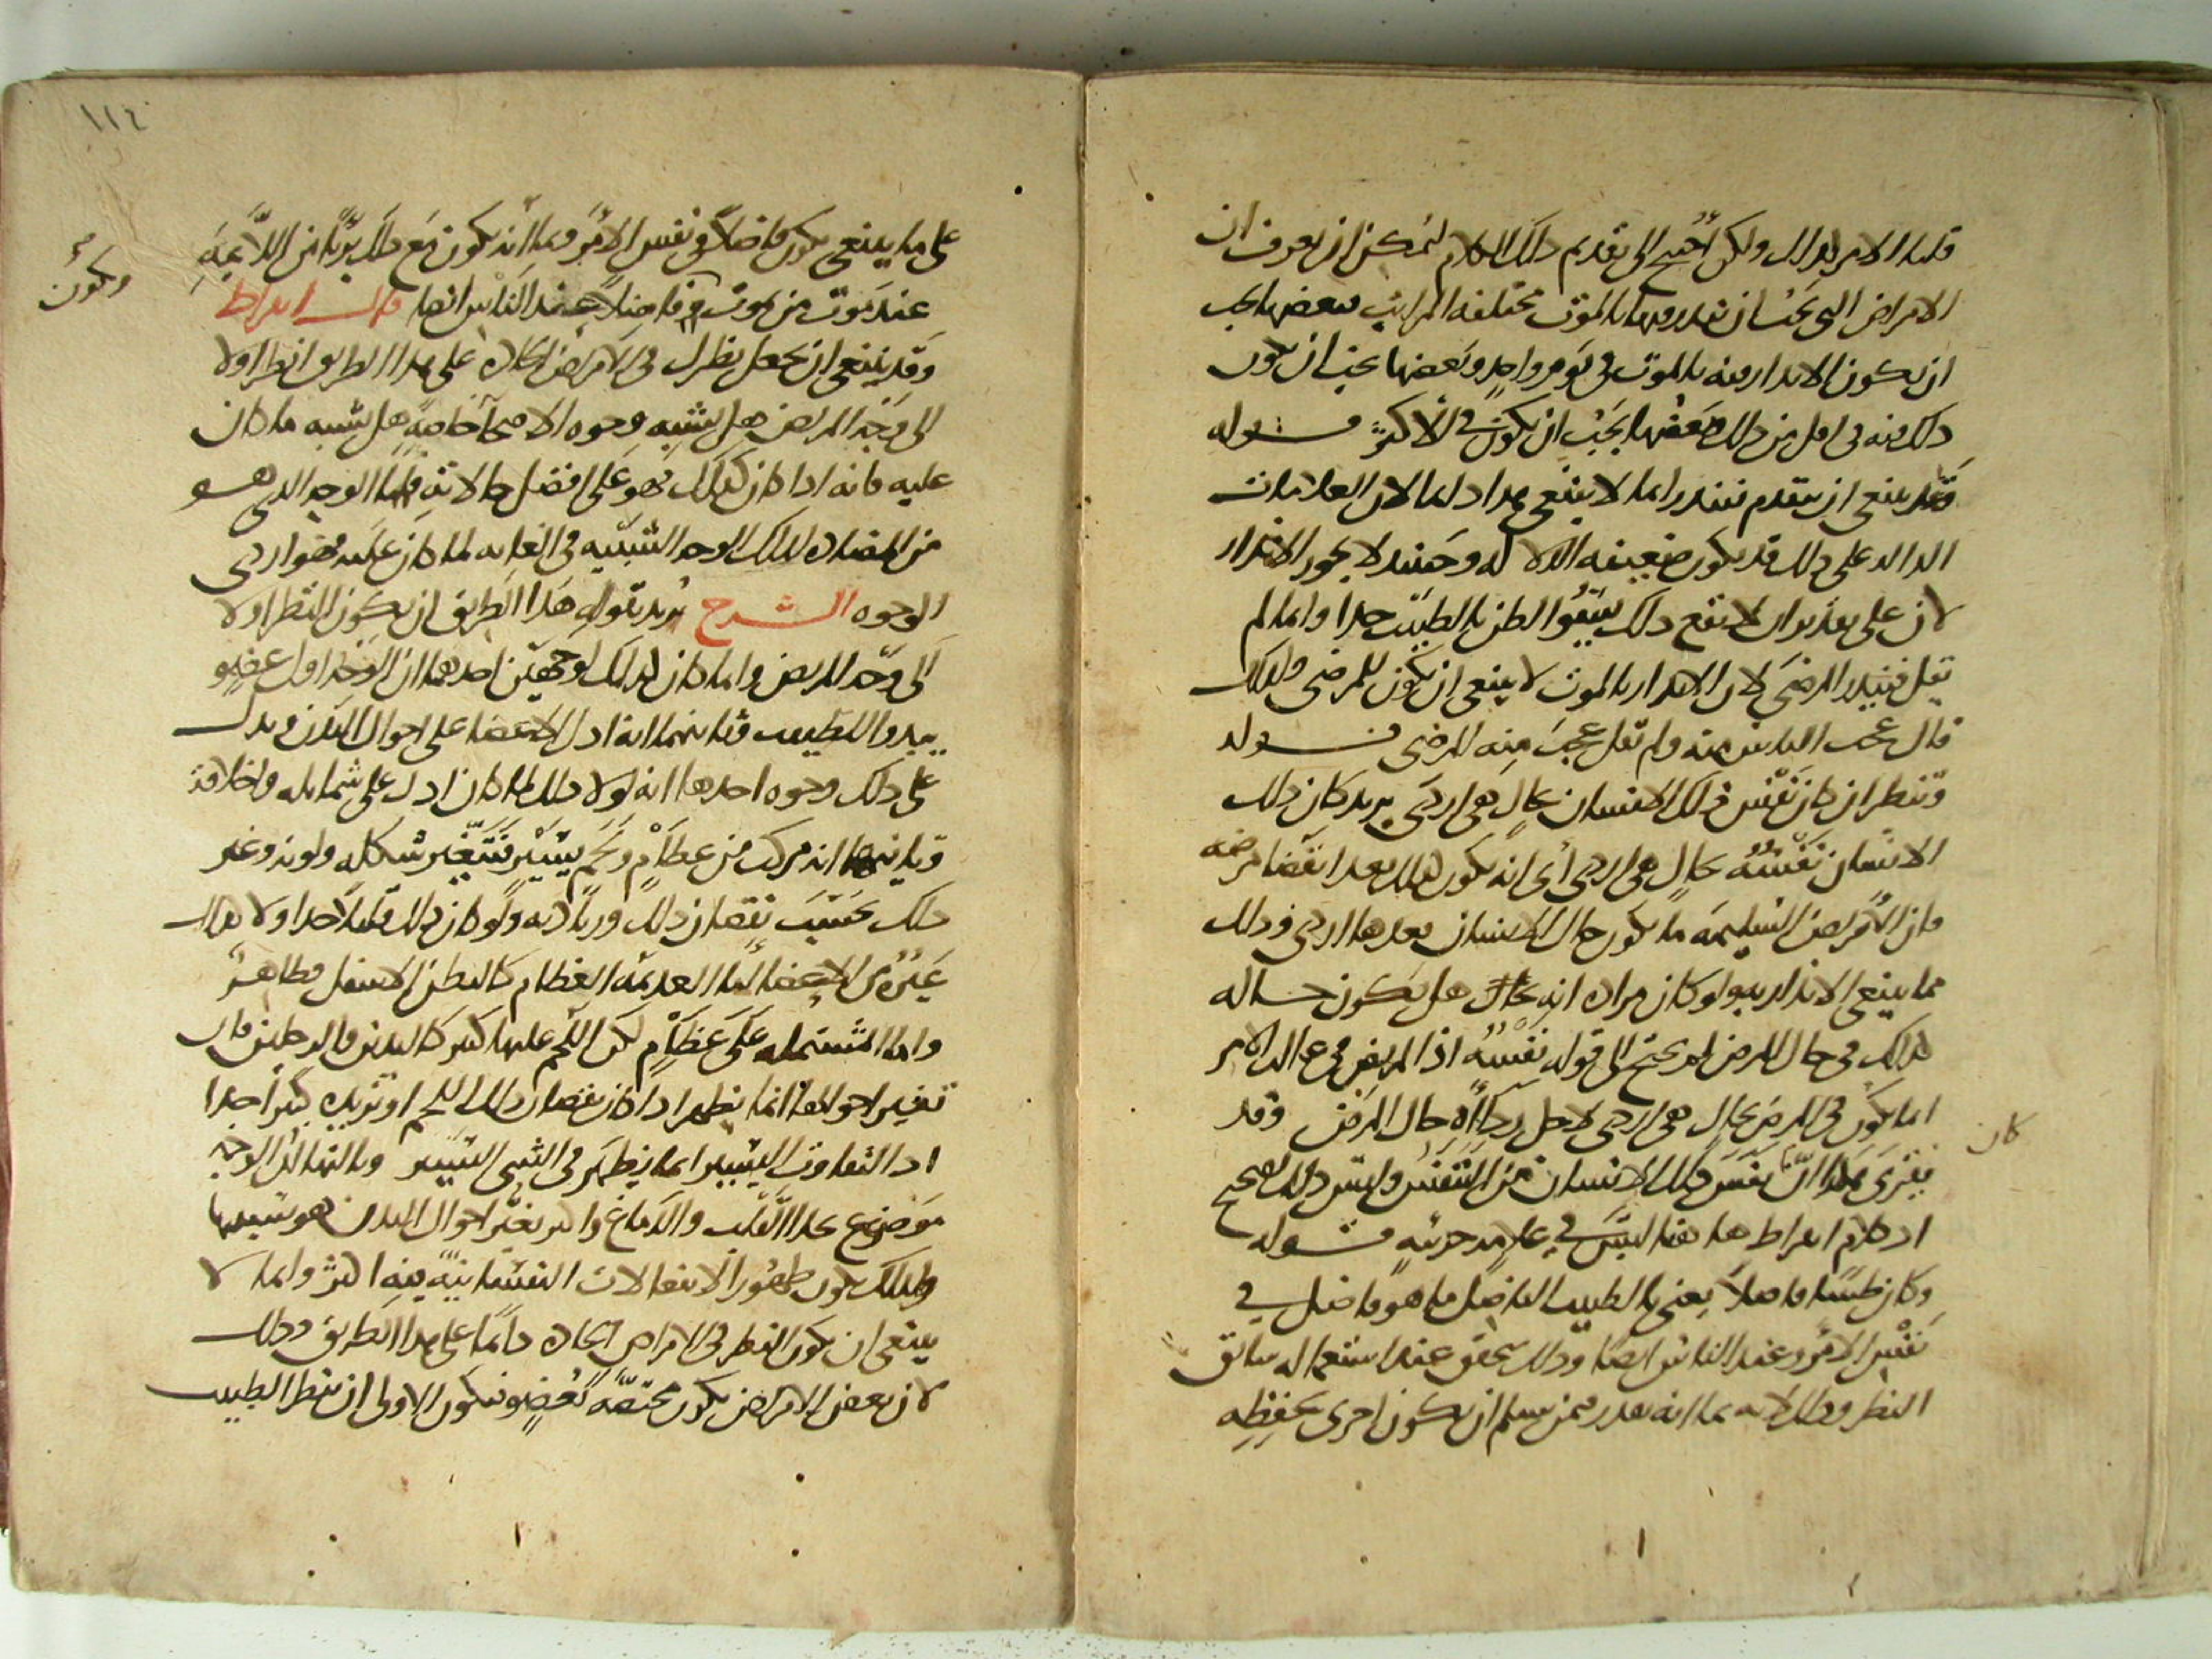 قلنا الامر كذلك ولكن احتيج الى تقديم ذلك الكلام ليمكن ان يعرف ان
الامراض التي يجب ان ينذر فيها بالموت مختلفة المراتب فبعضها يجب
ان يكون الانذار منه بالموت في يوم واحد وبعضها يجب ان يكون
ذلك منه في اقل من ذلك وبعضها يجب ان يكون في الاكثر قوله
وقد ينبغي ان يتقدم فينذر انما لا ينبغي هذا دائما لان العلامات
الدالة على ذلك قد يكون ضعيفه الدلاله وحينئذ لا يجوز الانذار
لان على تقدير ان لا يقع ذلك يسؤ الظن بالطبيب جدا وانما لم
يقل فينذر المرضى لان الانذار بالموت لا ينبغي ان يكون للمرضى ولذلك
قال عجب الناس منه ولم يقل عجب منه المرضى قوله
وتنظر ان كان نفس ذلك الانسان بحال هي اردى يريد كان ذلك
الانسان نفسه بحال هي اردى اي انه يكون كذلك بعد انقضا مرضه
فان الامراض السليمه ما يكون حال الانسان بعدها اردى وذلك
مما ينبغي الانذار به ولو كان مراده انه بحال هل يكون حاله
كذلك في حال المرض لم يحتج الى قوله نفسه اذ المريض في غالب الامر
انما يكون في المرض بحال هي اردى لاجل رداة حال المرض وقد
كان
يقرى هكذا ان نفس ذلك الانسان من التنفس وليس ذلك بصحيح
اذ كلام ابقراط ها هنا ليس في علامه جزئيه قوله
وكان طبيبا فاضلا يعني بالطبيب الفاضل ما هو فاضل في
نفس الامر وعند الناس ايضا وذلك يتحقق عند استعماله سابق
النظر وذلك لانه بما انه يقدر فمن يسلم ان يكون احرى بحفظه
١١٤
على ما ينبغي يكون فاضلا في نفس الامر وبما انه يكون مع ذلك بريا من اللائمة
ويكون
عند موت من يموت فاضلا عند الناس ايضا قال ابقراط
وقد ينبغي ان تجعل نظرك في الامراض الحادة على هذا الطريق انظر اولا
الى وجه المريض هل يشبه وجوه الاصحا خاصة هل يشبه ما كان
عليه فانه اذا كان كذلك فهو على افضل حالاته فاما الوجه الذي هو
من المضادة لذلك الوجه الشبيه في الغايه لما كان عليه فهو اردى
الوجوه الشرح يريد بقوله هذا الطريق ان يكون النظر اولا
الى وجه المريض وانما كان كذلك لوجهين احدهما ان الوجه اول عضو
يبدوا للطبيب وثانيهما انه ادل الاعضا على احوال البدن ويدل
على ذلك وجوه احدها انه لولا ذلك لما كان ادل على شمايله واخلاقه
وثانيها انه مركب من عظام ولحم يسير فتتغير شكله ولونه وغير
ذلك بحسب نقصان ذلك وزيادته ولو كان ذلك قليلا جدا ولا كذلك
غيره من الاعضا اما العديمة العظام كالبطن الاسفل فظاهر
واما المشتملة على عظام لكن اللحم عليها كثير كاليدين والرجلين فان
تغير احوالها انما يظهر اذا كان نقصان ذلك اللحم او تزيده كثيرا جدا
اذ التفاوت اليسير انما يظهر في الشي اليسير وثالثها ان الوجه
موضوع بحذا القلب والدماغ واكثر تغير احوال البدن هو بسببهما
ولذلك يكون ظهور الانفعالات النفسانيه فيه اكثر وانما لا
ينبغي ان يكون النظر في الامراض الحادة دائما على هذا الطريق وذلك
لان بعض الامراض يكون مختصة بعضو فيكون الاولى ان ينظر الطبيب